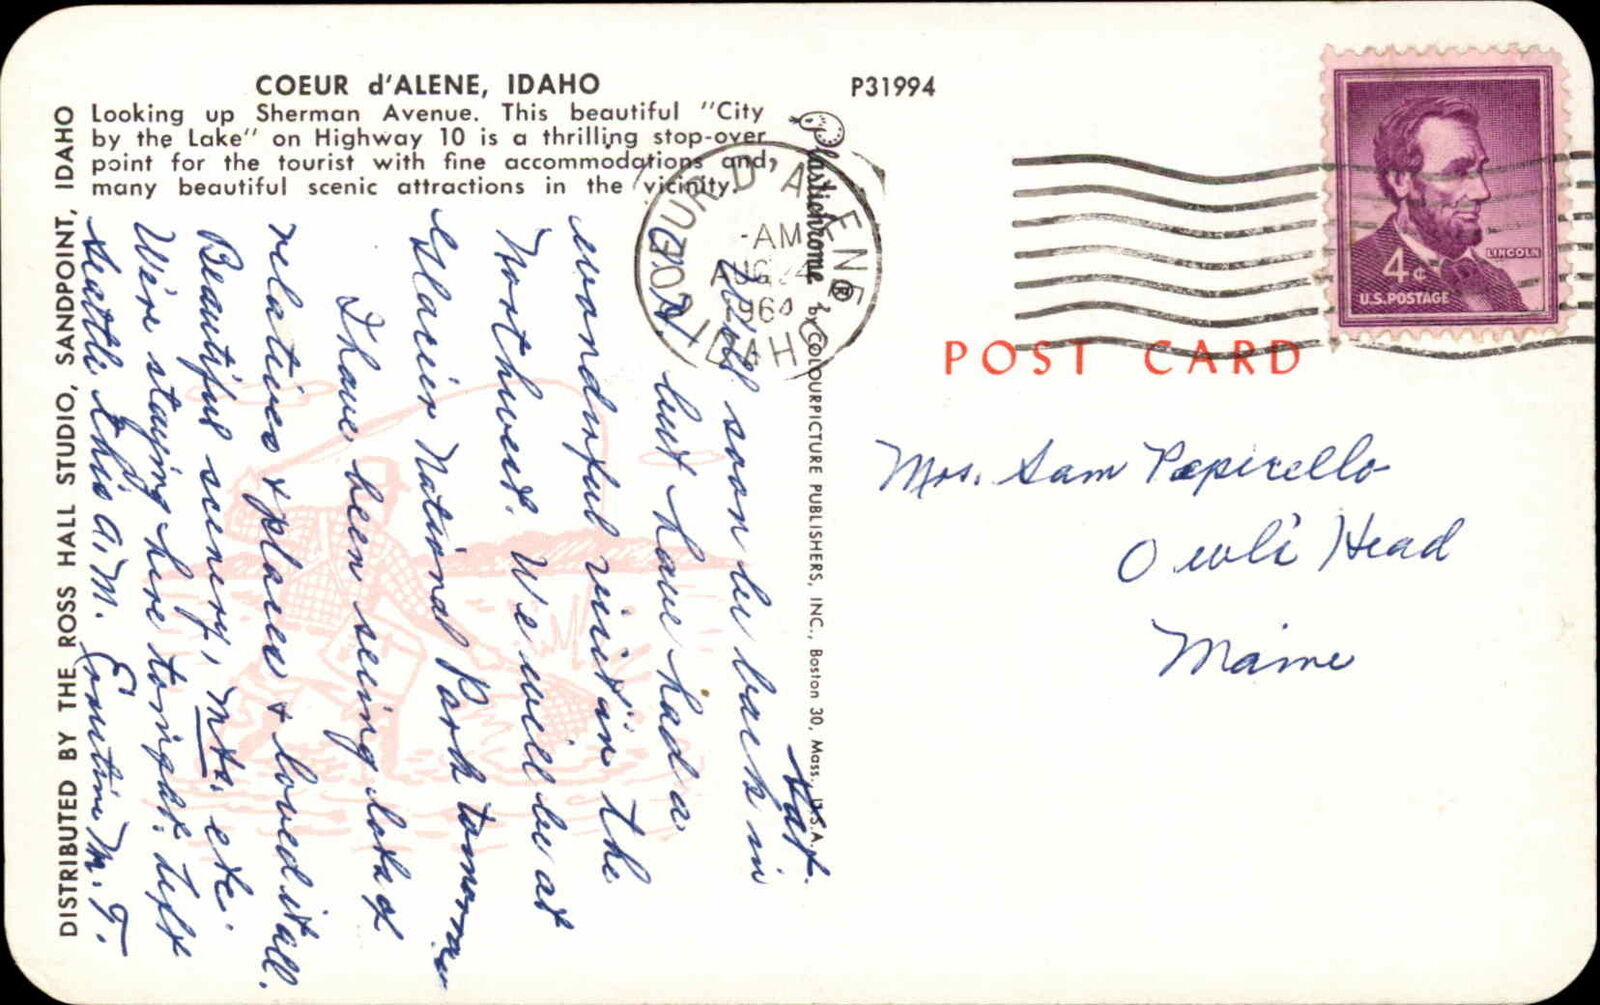 COEUR d'ALENE, IDAHO
Looking up Sherman Avenue. This beautiful "City
by the Lake" on Highway 10 is a thrilling stop-over
point for the tourist with fine accommodations and
many beautiful scenic attractions in the vicinity.
P31994
DISTRIBUTED BY THE ROSS HALL STUDIO, SANDPOINT, IDAHO
Plastichrome ® by COLOURPICTURE PUBLISHERS, INC., Boston 30, Mass., U.S.A.
COEUR D'ALENE
-AM
AUG 24
1964
IDAHO
LINCOLN
4¢
U.S. POSTAGE
POST CARD
Mrs. Sam
Owl's Head
Maine
Will soon be back in
but have had a
wonderful visit in the
Northwest. We will be at
Glacier National Park tomorrow
I have been seeing lots of
relatives & places & loved it all.
Beautiful scenery, Mts. etc.
We're staying here tonight. Left
Seattle this A.M. M. F.